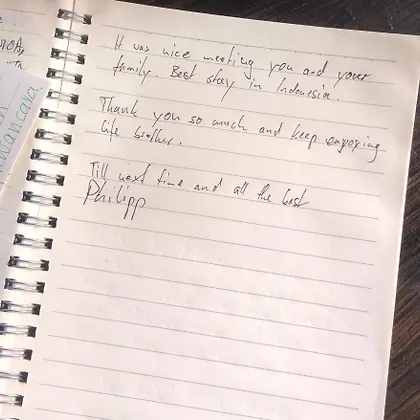 It was nice meeting you and your
family. Best stay in Indonesia.
Thank you so much and keep enjoying
life brother.
Till next time and all the best
Philipp